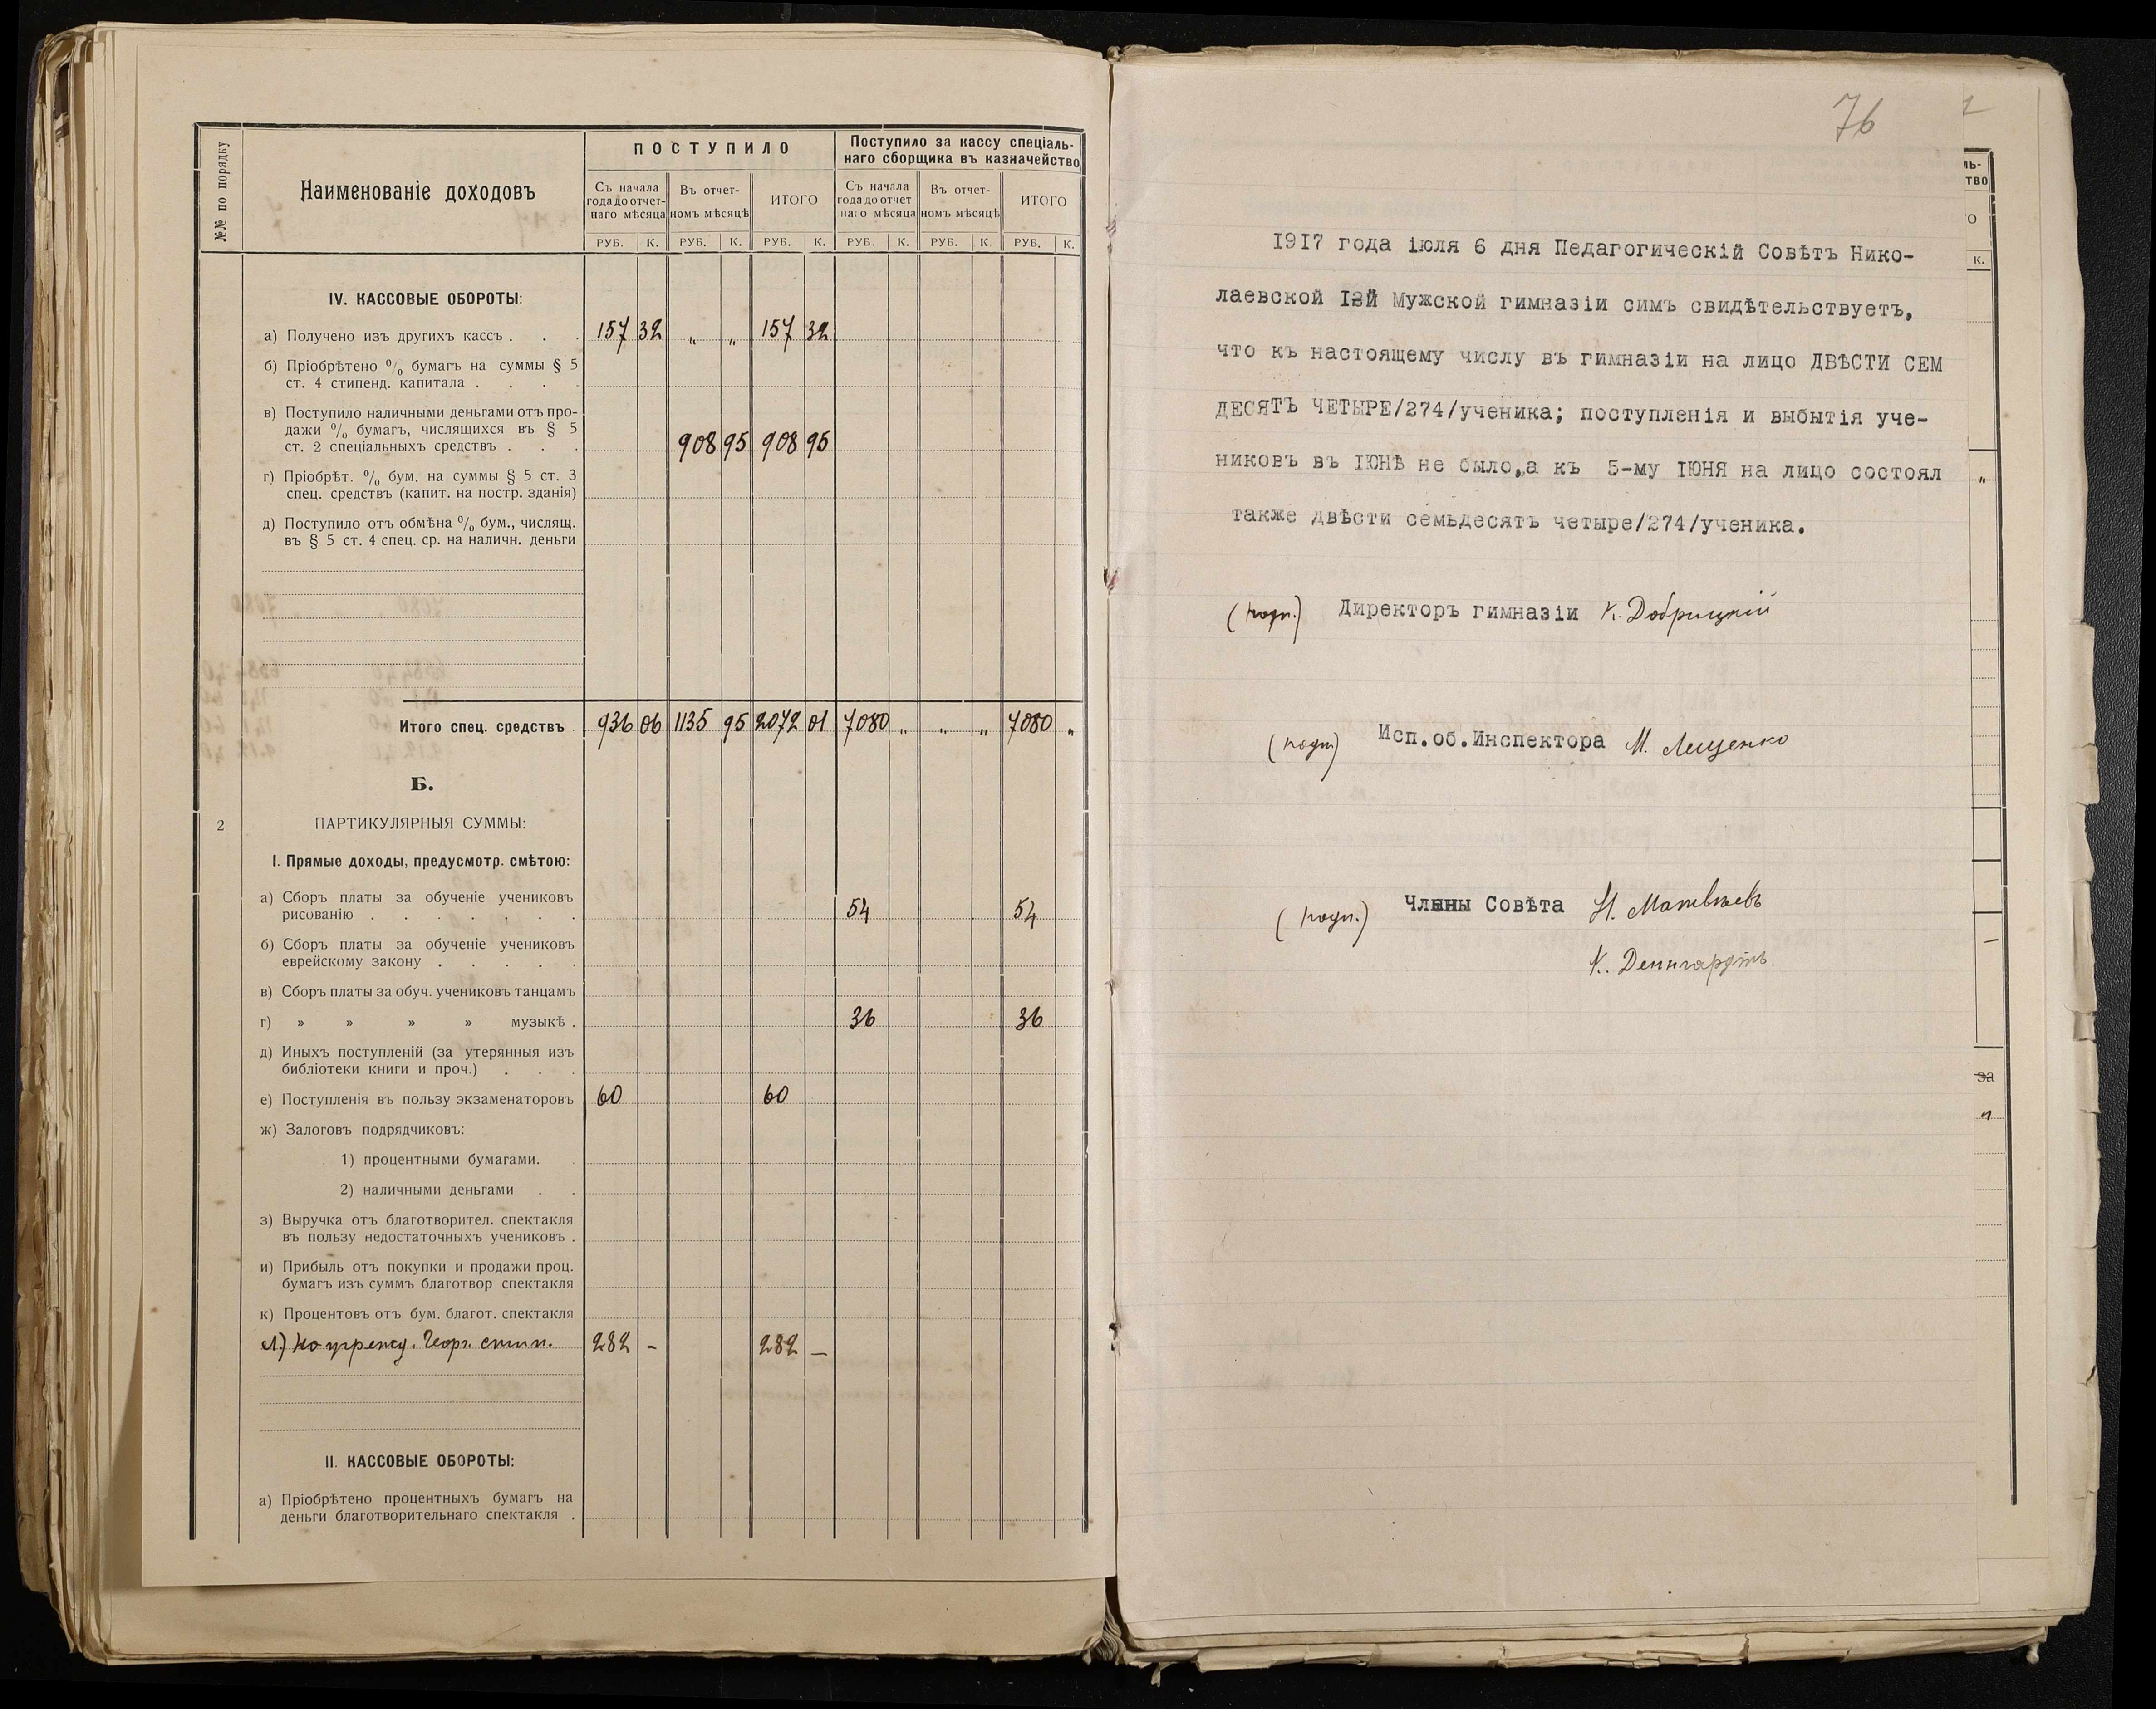 №№ по порядку
Наименованіе доходовъ
ПОСТУПИЛО
Поступило за кассу спеціаль-
наго сборщика въ казначейство
Съ начала
года до отчет-
наго мѣсяца
Въ отчет-
номъ мѣсяцѣ
ИТОГО
Съ начала
года до отчет
наго мѣсяца
Въ отчет-
номъ мѣсяцѣ
ИТОГО
РУБ. К. РУБ. К. РУБ. К. РУБ. К. РУБ. К. РУБ. К.
IV. КАССОВЫЕ ОБОРОТЫ:
а) Получено изъ другихъ кассъ . . . 157 32 „ „ 157 32
б) Пріобрѣтено % бумагъ на суммы § 5
ст. 4 стипенд. капитала . . . .
в) Поступило наличными деньгами отъ про-
дажи % бумагъ, числящихся въ § 5
ст. 2 спеціальныхъ средствъ . . . 908 95 908 95
г) Пріобрѣт. % бум. на суммы § 5 ст. 3
спец. средствъ (капит. на постр. зданія)
д) Поступило отъ обмѣна % бум., числящ.
въ § 5 ст. 4 спец. ср. на наличн. деньги
Итого спец. средствъ . 936 06 1135 95 2072 01 7080 „ „ „ 7080 „
Б.
2 ПАРТИКУЛЯРНЫЯ СУММЫ:
I. Прямые доходы, предусмотр. смѣтою:
а) Сборъ платы за обученіе учениковъ
рисованію . . . . . . . 54 54
б) Сборъ платы за обученіе учениковъ
еврейскому закону . . . . .
в) Сборъ платы за обуч. учениковъ танцамъ
г) » » » » музыкѣ . 36 36
д) Иныхъ поступленій (за утерянныя изъ
библіотеки книги и проч.) . . .
е) Поступленія въ пользу экзаменаторовъ 60 60
ж) Залоговъ подрядчиковъ:
1) процентными бумагами. .
2) наличными деньгами . .
з) Выручка отъ благотворител. спектакля
въ пользу недостаточныхъ учениковъ .
и) Прибыль отъ покупки и продажи проц.
бумагъ изъ суммъ благотвор спектакля
к) Процентовъ отъ бум. благот. спектакля
л) стип. 282 - 282 -
II. КАССОВЫЕ ОБОРОТЫ:
а) Пріобрѣтено процентныхъ бумагъ на
деньги благотворительнаго спектакля .
76
1917 года іюля 6 дня Педагогическій Совѣтъ Нико-
лаевской 1й Мужской гимназіи симъ свидѣтельствуетъ,
что къ настоящему числу въ гимназіи на лицо ДВѢСТИ СЕМ
ДЕСЯТЪ ЧЕТЫРЕ/274/ученика; поступленія и выбытія уче-
никовъ въ ІЮНѢ не было,а къ 5-му ІЮНЯ на лицо состоял
также двѣсти семьдесятъ четыре/274/ученика.
(подп.) Директоръ гимназіи К. Добрицкій
(подп) Исп.об.Инспектора М. Лещенко
(подп.) Члены Совѣта Н. Матвѣевъ
К. Деннгардтъ.
ль-
тво
О
К.
„
за